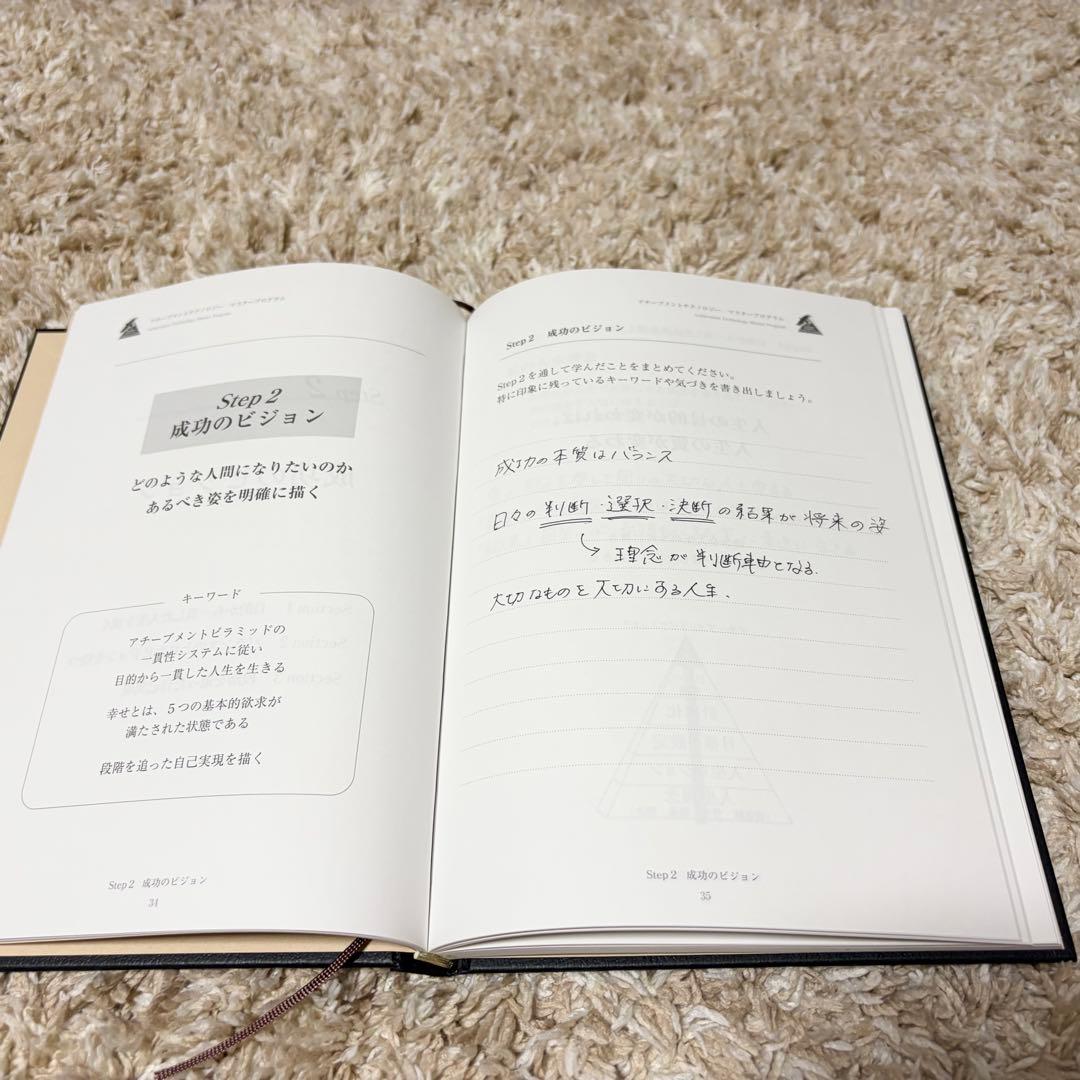 アチーブメントテクノロジー マスタープログラム
Achievement Technology Master Program
Step 2
成功のビジョン
どのような人間になりたいのか
あるべき姿を明確に描く
キーワード
アチーブメントピラミッドの
一貫性システムに従い
目的から一貫した人生を生きる
幸せとは、５つの基本的欲求が
満たされた状態である
段階を追った自己実現を描く
Step 2 成功のビジョン
34
アチーブメントテクノロジー マスタープログラム
Achievement Technology Master Program
Step 2 成功のビジョン
Step 2 を通して学んだことをまとめてください。
特に印象に残っているキーワードや気づきを書き出しましょう。
成功の本質はバランス
日々の判断・選択・決断の結果が将来の姿
↳ 理念が判断軸となる.
大切なものを大切にする人生.
Step 2 成功のビジョン
35